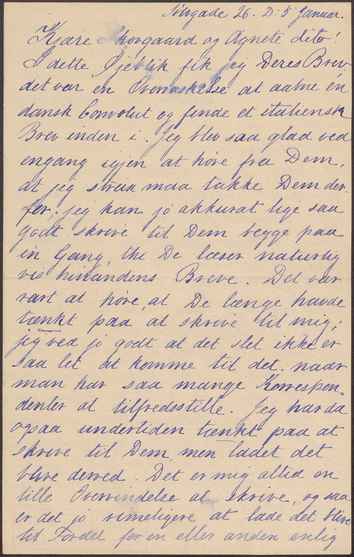 Nygade 26. D: 5 Januar.
Kjære Skovgaard og Agnete dito!
I dette Øjeblik fik jeg Deres Brev
det var en Overraskelse at aabne en
dansk Convolut og finde et italiensk
Brev inden i. Jeg blev saa glad ved
engang igjen at høre fra Dem,
at jeg straa maa takke Dem der
for; jeg kan jo akkurat lige saa
godt skrive til Dem begge paa
en Gang, thi De læser naturlig
vis hinandens Breve. Det var
rart at høre, at De længe havde
tænkt paa at skrive til mig;
jeg ved jo godt at det slet ikke er
saa let at komme til det, naar
man har saa mange Korrespon
denter at tilfredsstille. Jeg har da
ogsaa undertiden tænkt paa at
skrive til Dem, men ladet det
blive derved. Det er mig altid en
lille Overvindelse at skrive, og saa
er det jo rimeligere at lade det blive
til Fordel for en eller anden enlig